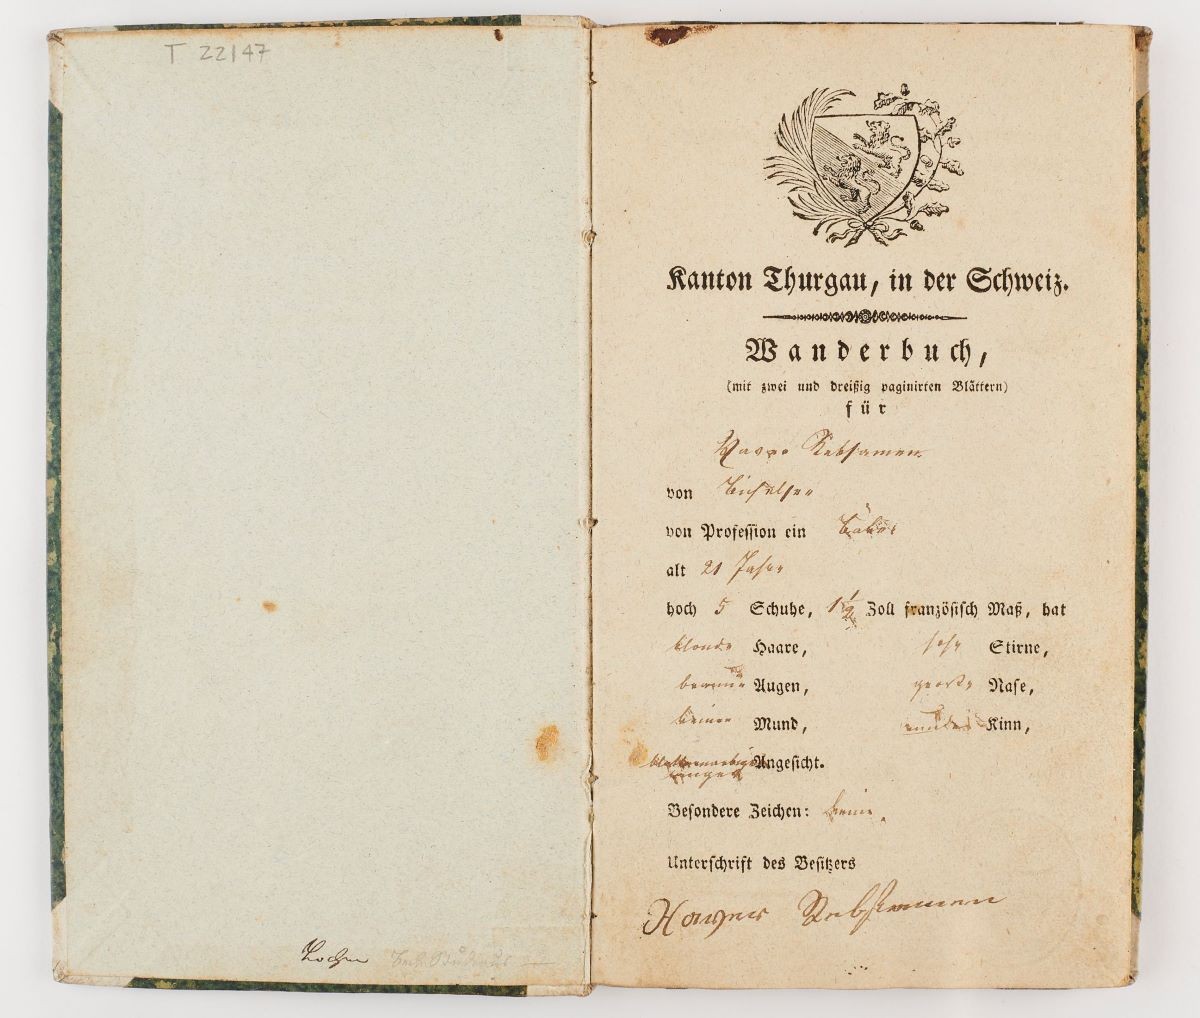 T 22147
Kanton Thurgau, in der Schweiz.
Wanderbuch,
(mit zwei und dreißig paginirten Blättern)
für
Rebsamen
von Bichelsee
von Profession ein Bäker
alt 21 Jahre
hoch 5 Schuhe, 1 1/2 Zoll französisch Maß, hat
blonde Haare, hohe Stirne,
braune Augen, große Nase,
kleinen Mund, rundes Kinn,
blatternarbiges
langes Angesicht.
Besondere Zeichen: keine.
Unterschrift des Besitzers
Rebsamen